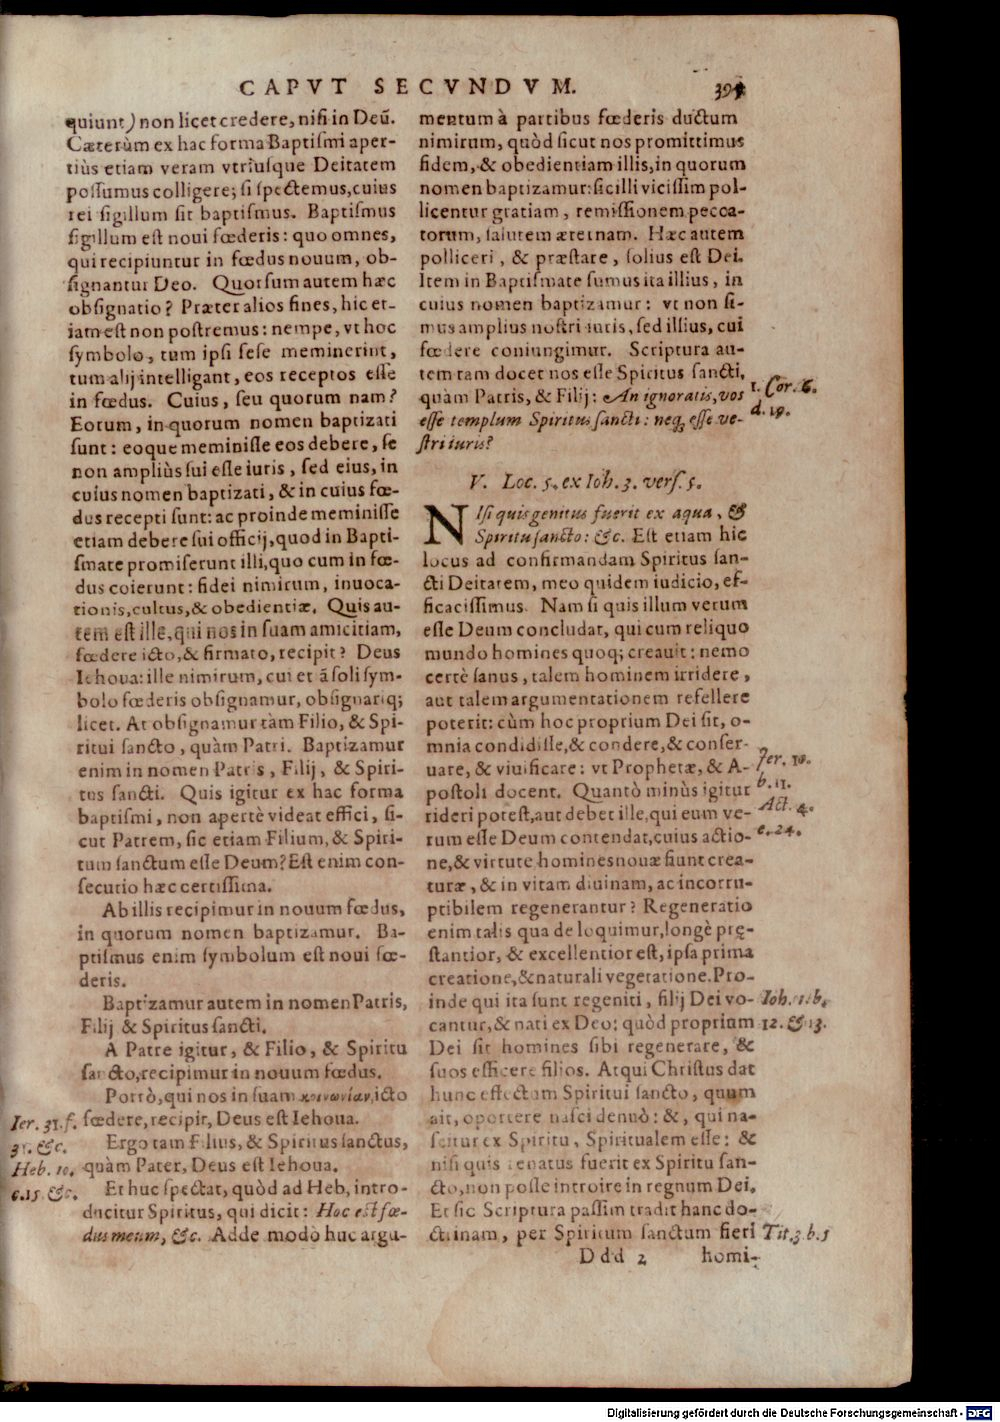 CAPVT SECVNDVM.
quiunt) non licet credere, nisi in Deũ.
Cæterùm ex hac forma Baptismi aper-
tiùs etiam veram vtriusque Deitatem
possumus colligere; si spectemus, cuius
rei sigillum sit baptismus. Baptismus
sigillum est noui fœderis: quo omnes,
qui recipiuntur in fœdus nouum, ob-
signantur Deo. Quorsum autem hæc
obsignatio? Præter alios fines, hic et-
iam est non postremus: nempe, vt hoc
symbolo, tum ipsi sese meminerint,
tum alij intelligant, eos receptos esse
in fœdus. Cuius, seu quorum nam?
Eorum, in quorum nomen baptizati
sunt: eoque meminisse eos debere, se
non ampliùs sui esse iuris, sed eius, in
cuius nomen baptizati, & in cuius fœ-
dus recepti sunt: ac proinde meminisse
etiam debere sui officij, quod in Bapti-
smate promiserunt illi, quo cum in fœ-
dus coierunt: fidei nimirum, inuoca-
tionis, cultus, & obedientiæ. Quis au-
tem est ille, qui nos in suam amicitiam,
fœdere icto, & firmato, recipit? Deus
Iehoua: ille nimirum, cui et ã soli sym-
bolo fœderis obsignamur, obsignariq;
licet. At obsignamur tàm Filio, & Spi-
ritui sancto, quàm Patri. Baptizamur
enim in nomen Patris, Filij, & Spiri-
tus sancti. Quis igitur ex hac forma
baptismi, non apertè videat effici, si-
cut Patrem, sic etiam Filium, & Spiri-
tum sanctum esse Deum? Est enim con-
secutio hæc certissima.
Ab illis recipimur in nouum fœdus,
in quorum nomen baptizamur. Ba-
ptismus enim symbolum est noui fœ-
deris.
Baptizamur autem in nomen Patris,
Filij & Spiritus sancti.
A Patre igitur, & Filio, & Spiritu
sancto, recipimur in nouum fœdus.
Porrò, qui nos in suam κοινωνίαν, icto
fœdere, recipit, Deus est Iehoua.
Ergo tam Filius, & Spiritus sanctus,
quàm Pater, Deus est Iehoua.
Et huc spectat, quòd ad Heb, intro-
ducitur Spiritus, qui dicit: Hoc est fœ-
dus meum, &c. Adde modò huc argu-
Ier. 31. f.
31. &c.
Heb. 10.
c. 15 &c.
mentum à partibus fœderis ductum
nimirum, quòd sicut nos promittimus
fidem, & obedientiam illis, in quorum
nomen baptizamur: sic illi vicissim pol-
licentur gratiam, remissionem pecca-
torum, salutem æternam. Hæc autem
polliceri, & præstare, solius est Dei.
Item in Baptismate sumus ita illius, in
cuius nomen baptizamur: vt non si-
mus amplius nostri iuris, sed illius, cui
fœdere coniungimur. Scriptura au-
tem tam docet nos esse Spiritus sancti,
quàm Patris, & Filij: An ignoratis, vos
esse templum Spiritus sancti: neq; esse ve-
stri iuris?
1. Cor. 6.
d. 19.
V. Loc. 5. ex Ioh. 3. vers. 5.
NIsi quis genitus fuerit ex aqua, &
Spiritu sancto: &c. Est etiam hic
locus ad confirmandam Spiritus san-
cti Deitatem, meo quidem iudicio, ef-
ficacissimus. Nam si quis illum verum
esse Deum concludat, qui cum reliquo
mundo homines quoq; creauit: nemo
certè sanus, talem hominem irridere,
aut talem argumentationem refellere
poterit: cùm hoc proprium Dei sit, o-
mnia condidisse, & condere, & conser-
uare, & viuificare: vt Prophetæ, & A-
postoli docent. Quantò minùs igitur
rideri potest, aut debet ille, qui eum ve-
rum esse Deum contendat, cuius actio-
ne, & virtute homines nouæ fiunt crea-
turæ, & in vitam diuinam, ac incorru-
ptibilem regenerantur? Regeneratio
enim talis qua de loquimur, longè prę-
stantior, & excellentior est, ipsa prima
creatione, & naturali vegetatione. Pro-
inde qui ita sunt regeniti, filij Dei vo-
cantur, & nati ex Deo: quòd proprium
Dei sit homines sibi regenerare, &
suos efficere filios. Atqui Christus dat
hunc effectum Spiritui sancto, quum
ait, oportere nasci denuò: &, qui na-
scitur ex Spiritu, Spiritualem esse: &
nisi quis renatus fuerit ex Spiritu san-
cto, non posse introire in regnum Dei.
Et sic Scriptura passim tradit hanc do-
ctrinam, per Spiritum sanctum fieri
Ier. 10.
b. 11.
Act. 4.
e. 24.
Ioh. 1. b.
12. & 13.
Tit. 3 b. 5
Ddd 2 homi-
Digitalisierung gefördert durch die Deutsche Forschungsgemeinschaft - DFG